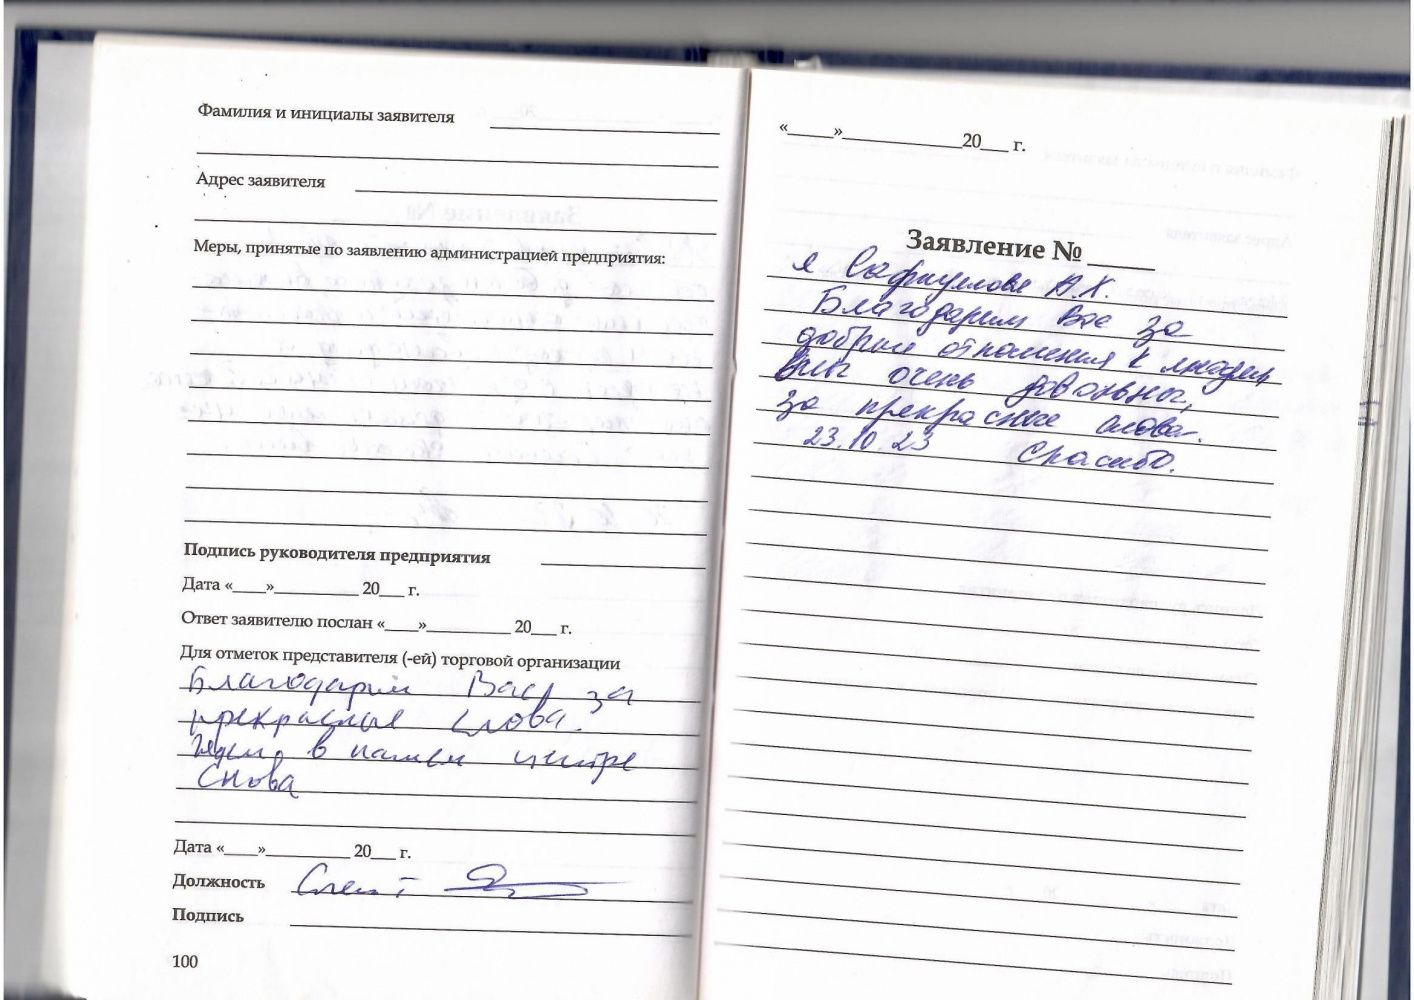 Фамилия и инициалы заявителя
Адрес заявителя
Меры, принятые по заявлению администрацией предприятия:
Подпись руководителя предприятия
Дата «____»__________ 20___ г.
Ответ заявителю послан «____»__________ 20___ г.
Для отметок представителя (-ей) торговой организации
Благодарим Вас за
прекрасные слова.
Ждем в нашем центре
Снова
Дата «____»__________ 20___ г.
Должность
Подпись
100
«_____»_____________20___ г.
Заявление № _____
я А.Х.
Благодарим Вас за
добрые отношения к людям
мы очень довольны,
за прекрасные слова.
23.10.23 Спасибо.